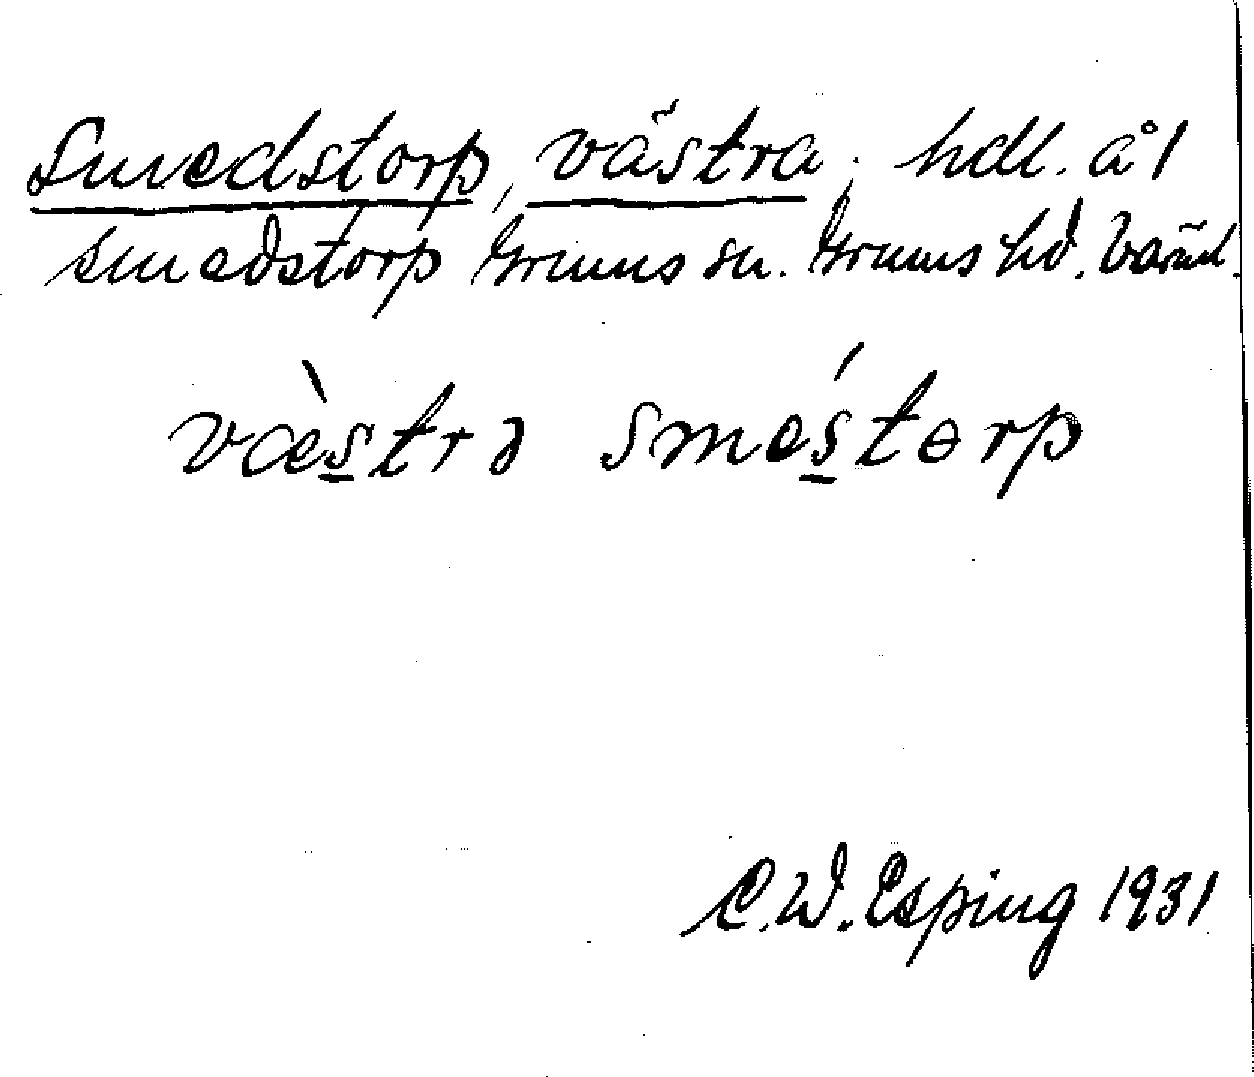 Smedstorp, västra; hdl. å 1
smedstorp Grums sn. Grums hd. Värml.
væ̀s̲trə smés̲tɵrp
C. W. Esping 1931